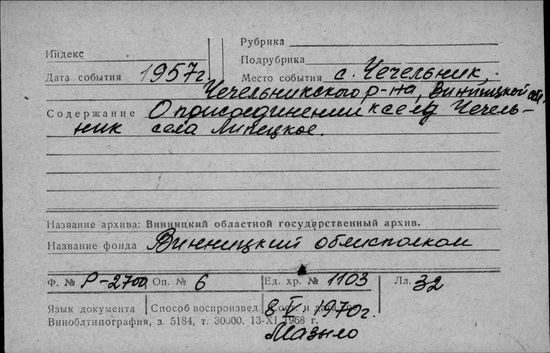 Рубрика
Индекс
Подрубрика
Дата события 1957г. Место события с. Чечельник,
Чечельникского р-на, Винницкой обл.
Содержание О присоединении к селу Чечель-
ник села Липецкое.
Название архива: Винницкий областной государственный архив.
Название фонда Винницкий облисполком
Ф. № Р-2700 Оп. № 6 Ед. хр. № 1103 Лл. 32
Язык документа Способ воспроизвед. 8 V 1970г.
Виноблтипография, з. 5184, т. 30000. 13-XI 1968 г.